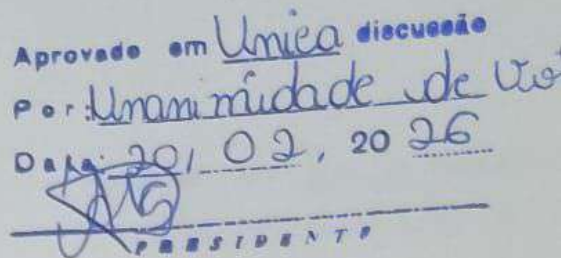 Aprovado em Unica discussão
Por: Unanimidade de Vo
Data: 20, 02, 20 26
PRESIDENTE